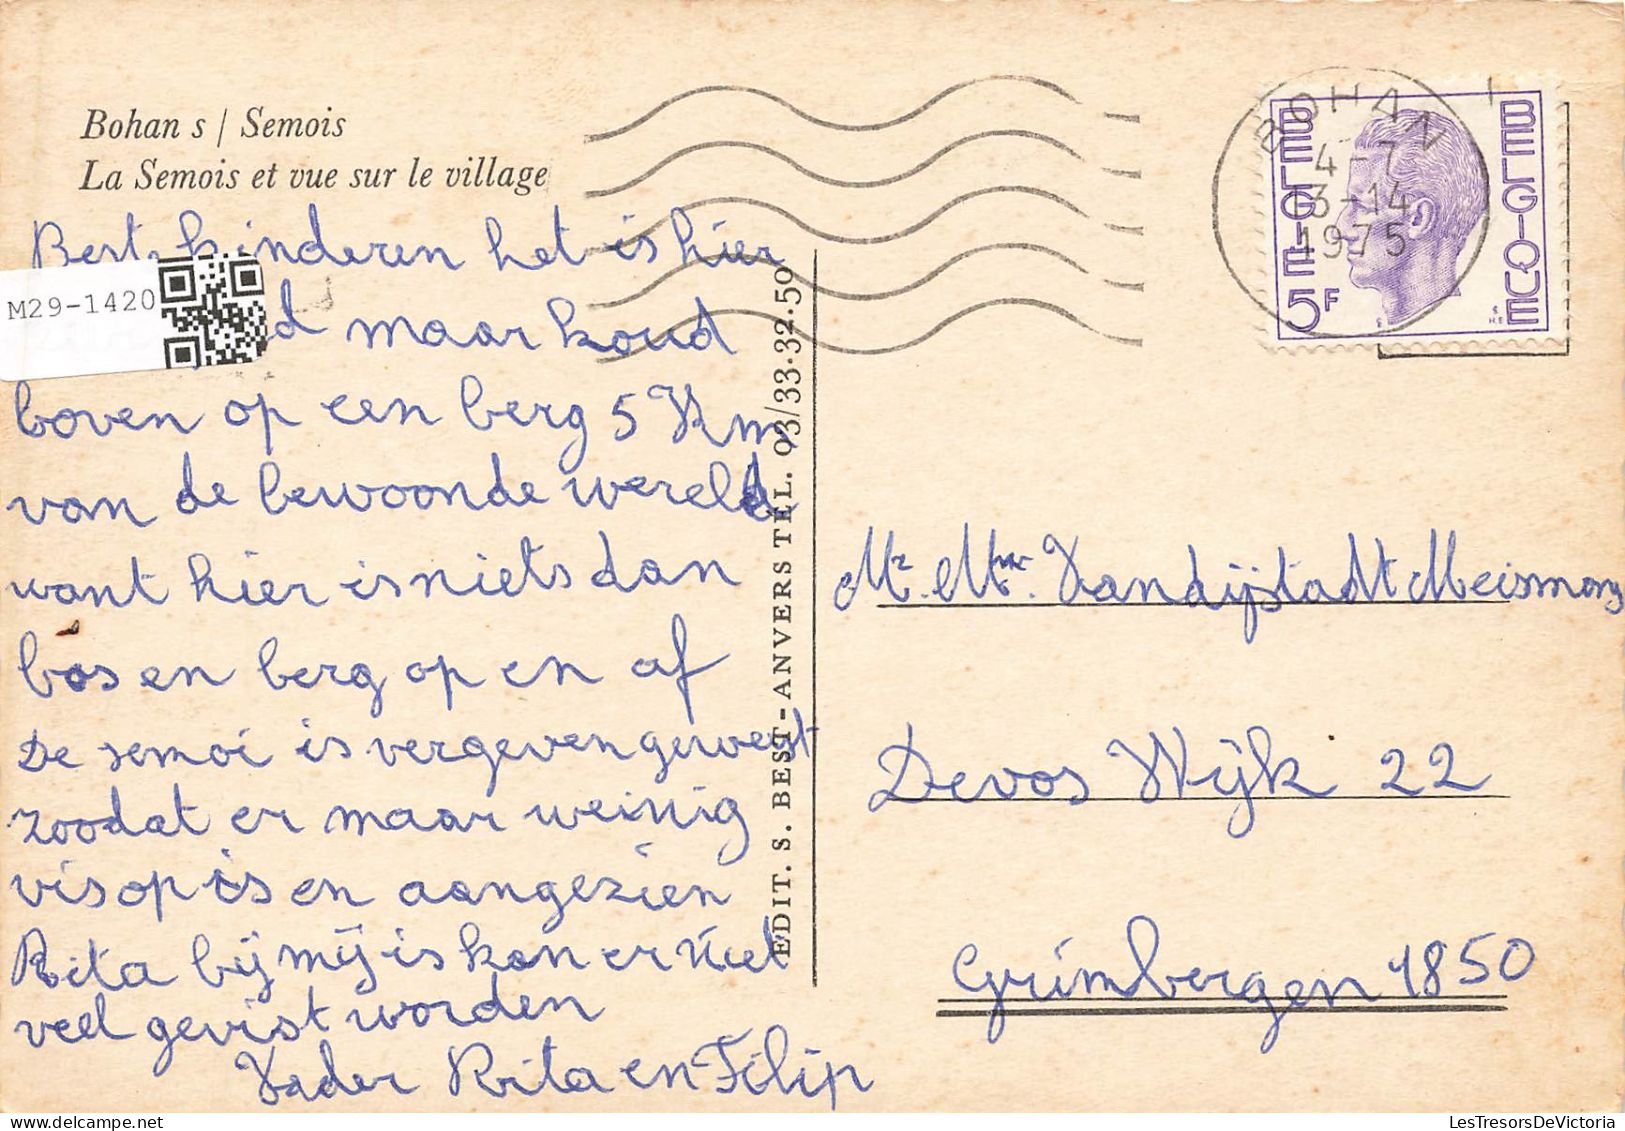 Bohan s / Semois
La Semois et vue sur le village
Beste kinderen het is hier
maar koud
boven op een berg 5 Km
van de bewoonde wereld
want hier is niets dan
bos en berg op en af
De semoi is vergeven geweest
zoodat er maar weinig
vis op is en aangezien
Rita bij mij is kan er niet
veel gevist worden
Vader Rita en Filip
M29-1420
EDIT. S. BEST - ANVERS TÉL. 03/33.32.50
BOHAN 1
4-7
13-14
1975
BELGIË
BELGIQUE
5F
Mr. Mvr. Vandijstadt Meismans
Devos Wijk 22
Grimbergen 1850
LesTresorsDeVictoria